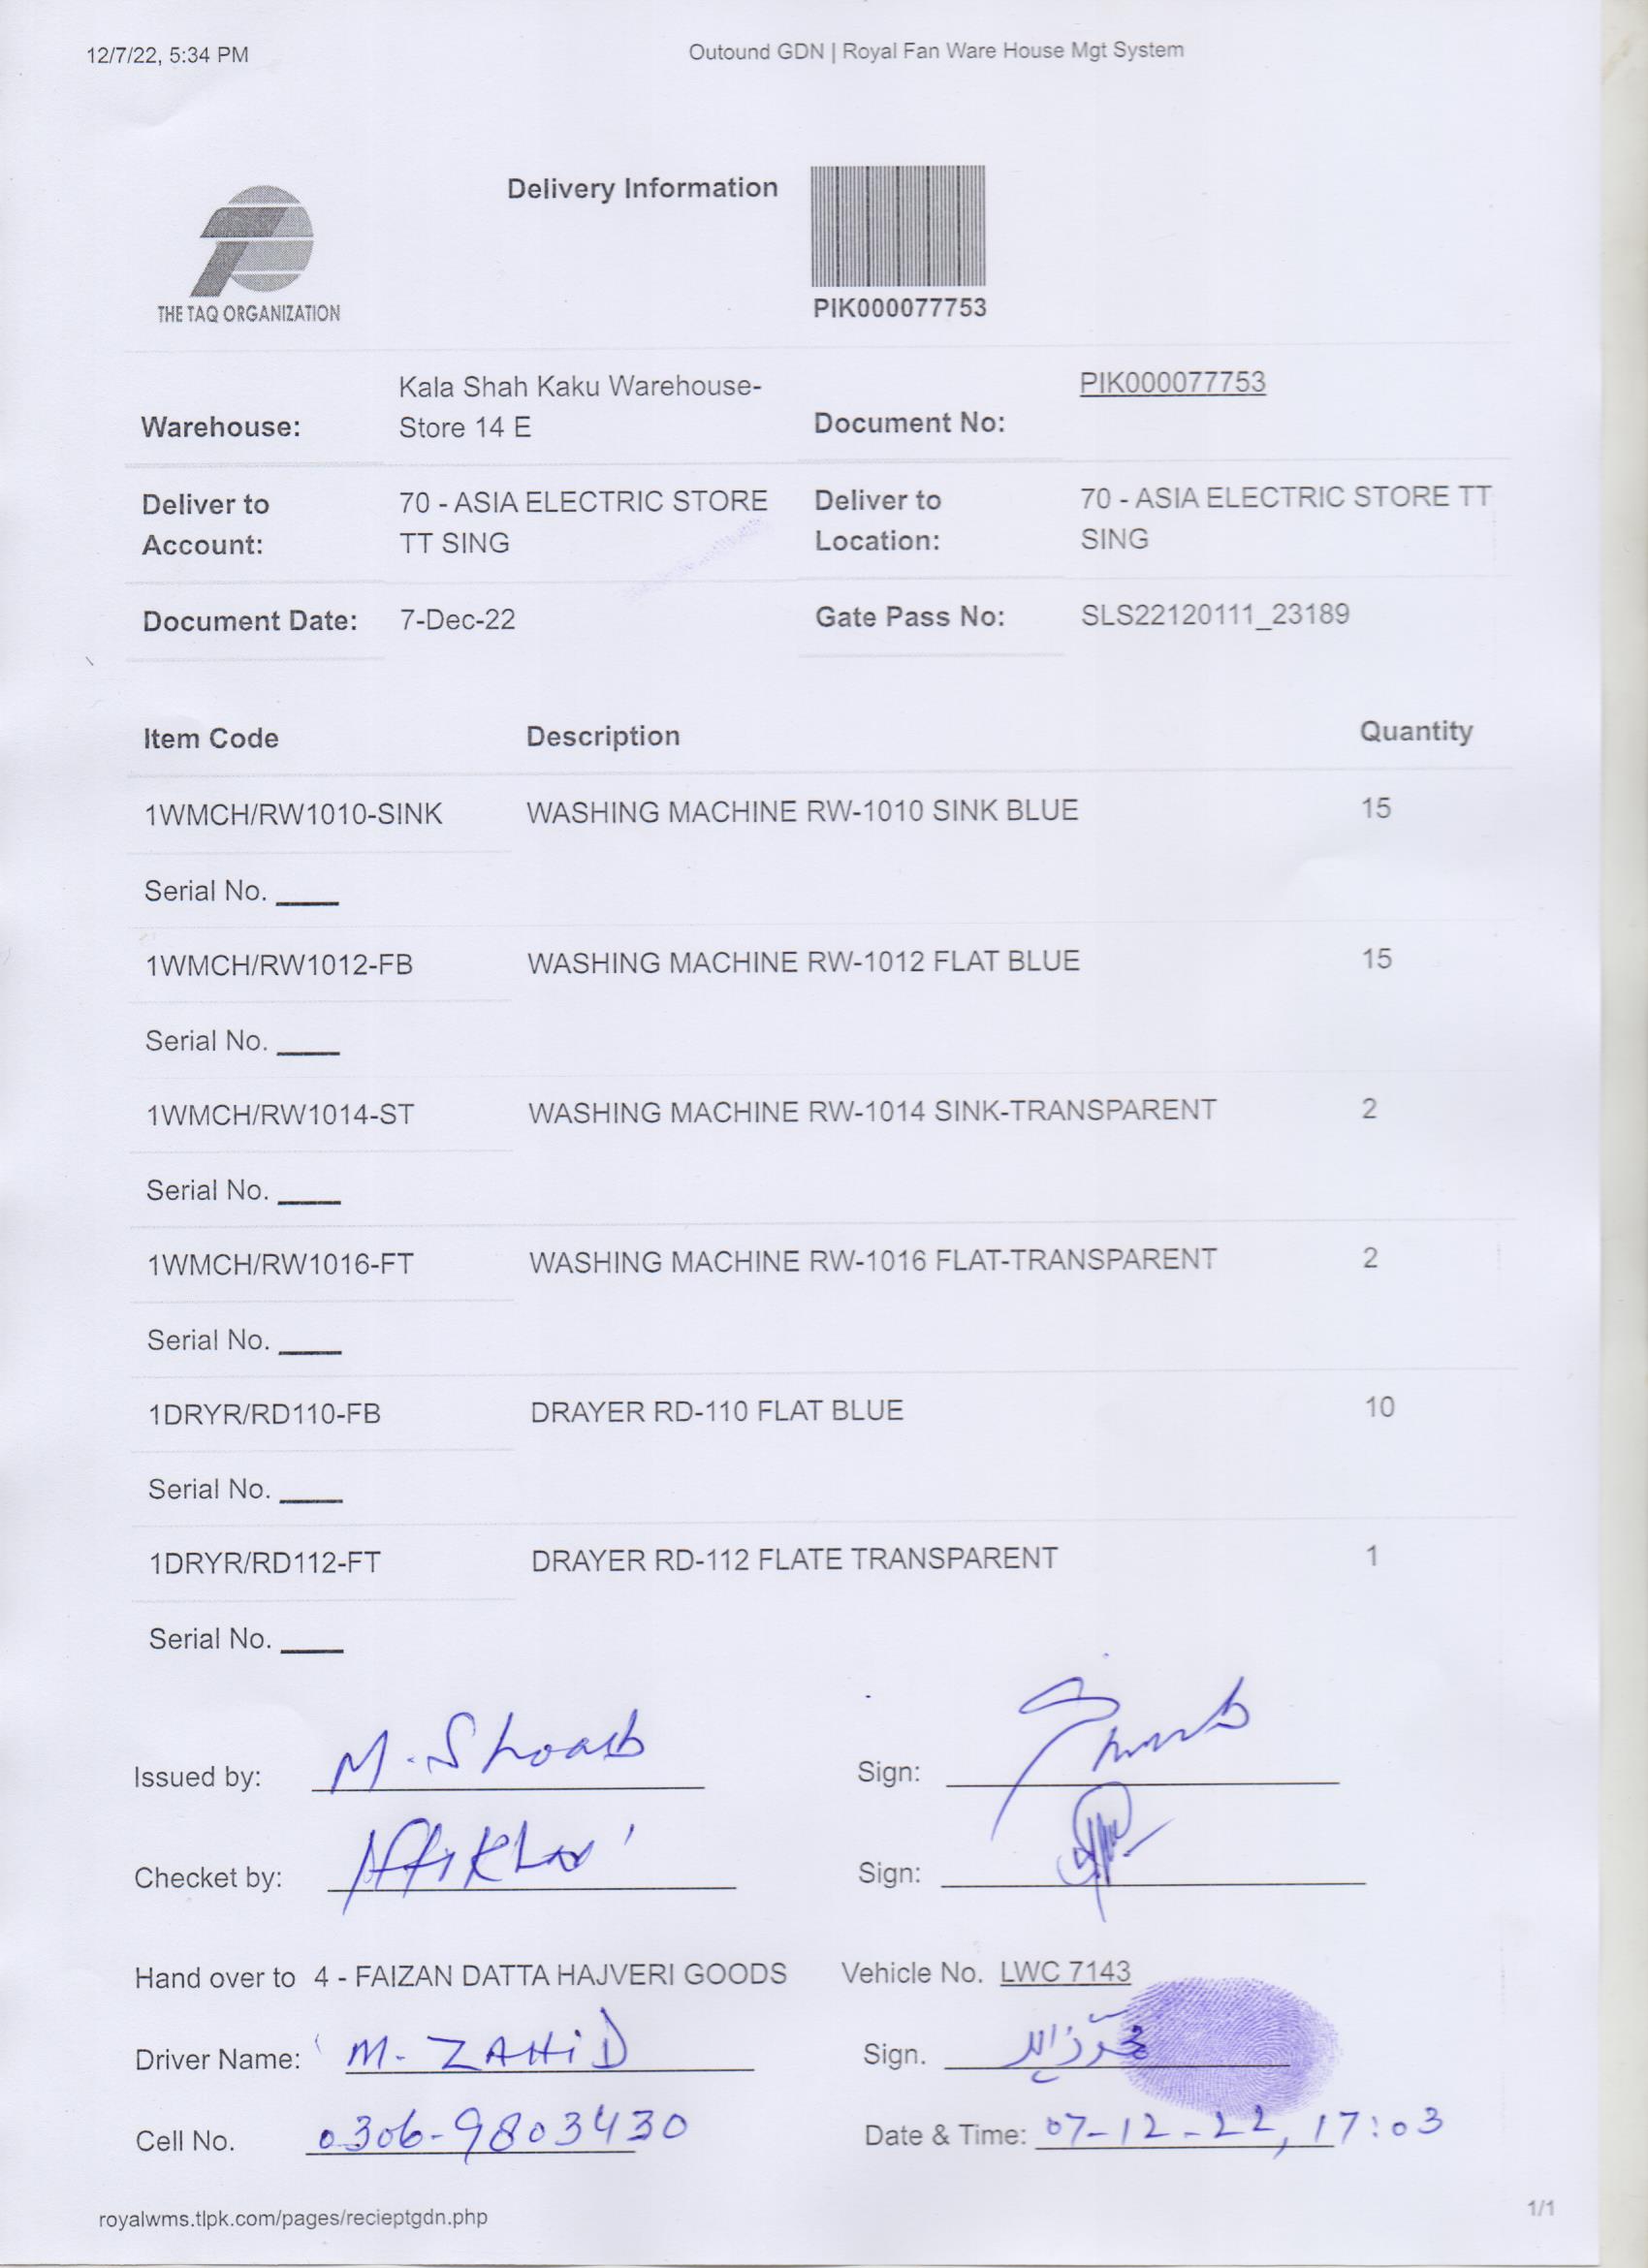 12/7/22, 5:34 PM
Outound GDN | Royal Fan Ware House Mgt System
THE TAQ ORGANIZATION
Delivery Information
PIK000077753
Warehouse: Kala Shah Kaku Warehouse-
Store 14 E
Document No: PIK000077753
Deliver to
Account:
70 - ASIA ELECTRIC STORE
TT SING
Deliver to
Location:
70 - ASIA ELECTRIC STORE TT
SING
Document Date: 7-Dec-22
Gate Pass No: SLS22120111_23189
Item Code Description Quantity
1WMCH/RW1010-SINK WASHING MACHINE RW-1010 SINK BLUE 15
Serial No. ____
1WMCH/RW1012-FB WASHING MACHINE RW-1012 FLAT BLUE 15
Serial No. ____
1WMCH/RW1014-ST WASHING MACHINE RW-1014 SINK-TRANSPARENT 2
Serial No. ____
1WMCH/RW1016-FT WASHING MACHINE RW-1016 FLAT-TRANSPARENT 2
Serial No. ____
1DRYR/RD110-FB DRAYER RD-110 FLAT BLUE 10
Serial No. ____
1DRYR/RD112-FT DRAYER RD-112 FLATE TRANSPARENT 1
Serial No. ____
Issued by: M. Shoaib Sign:
Checket by: Sign:
Hand over to 4 - FAIZAN DATTA HAJVERI GOODS Vehicle No. LWC 7143
Driver Name: M- ZAHiD Sign.
Cell No. 0306-9803430 Date & Time: 07-12-22, 17:03
royalwms.tlpk.com/pages/recieptgdn.php
1/1